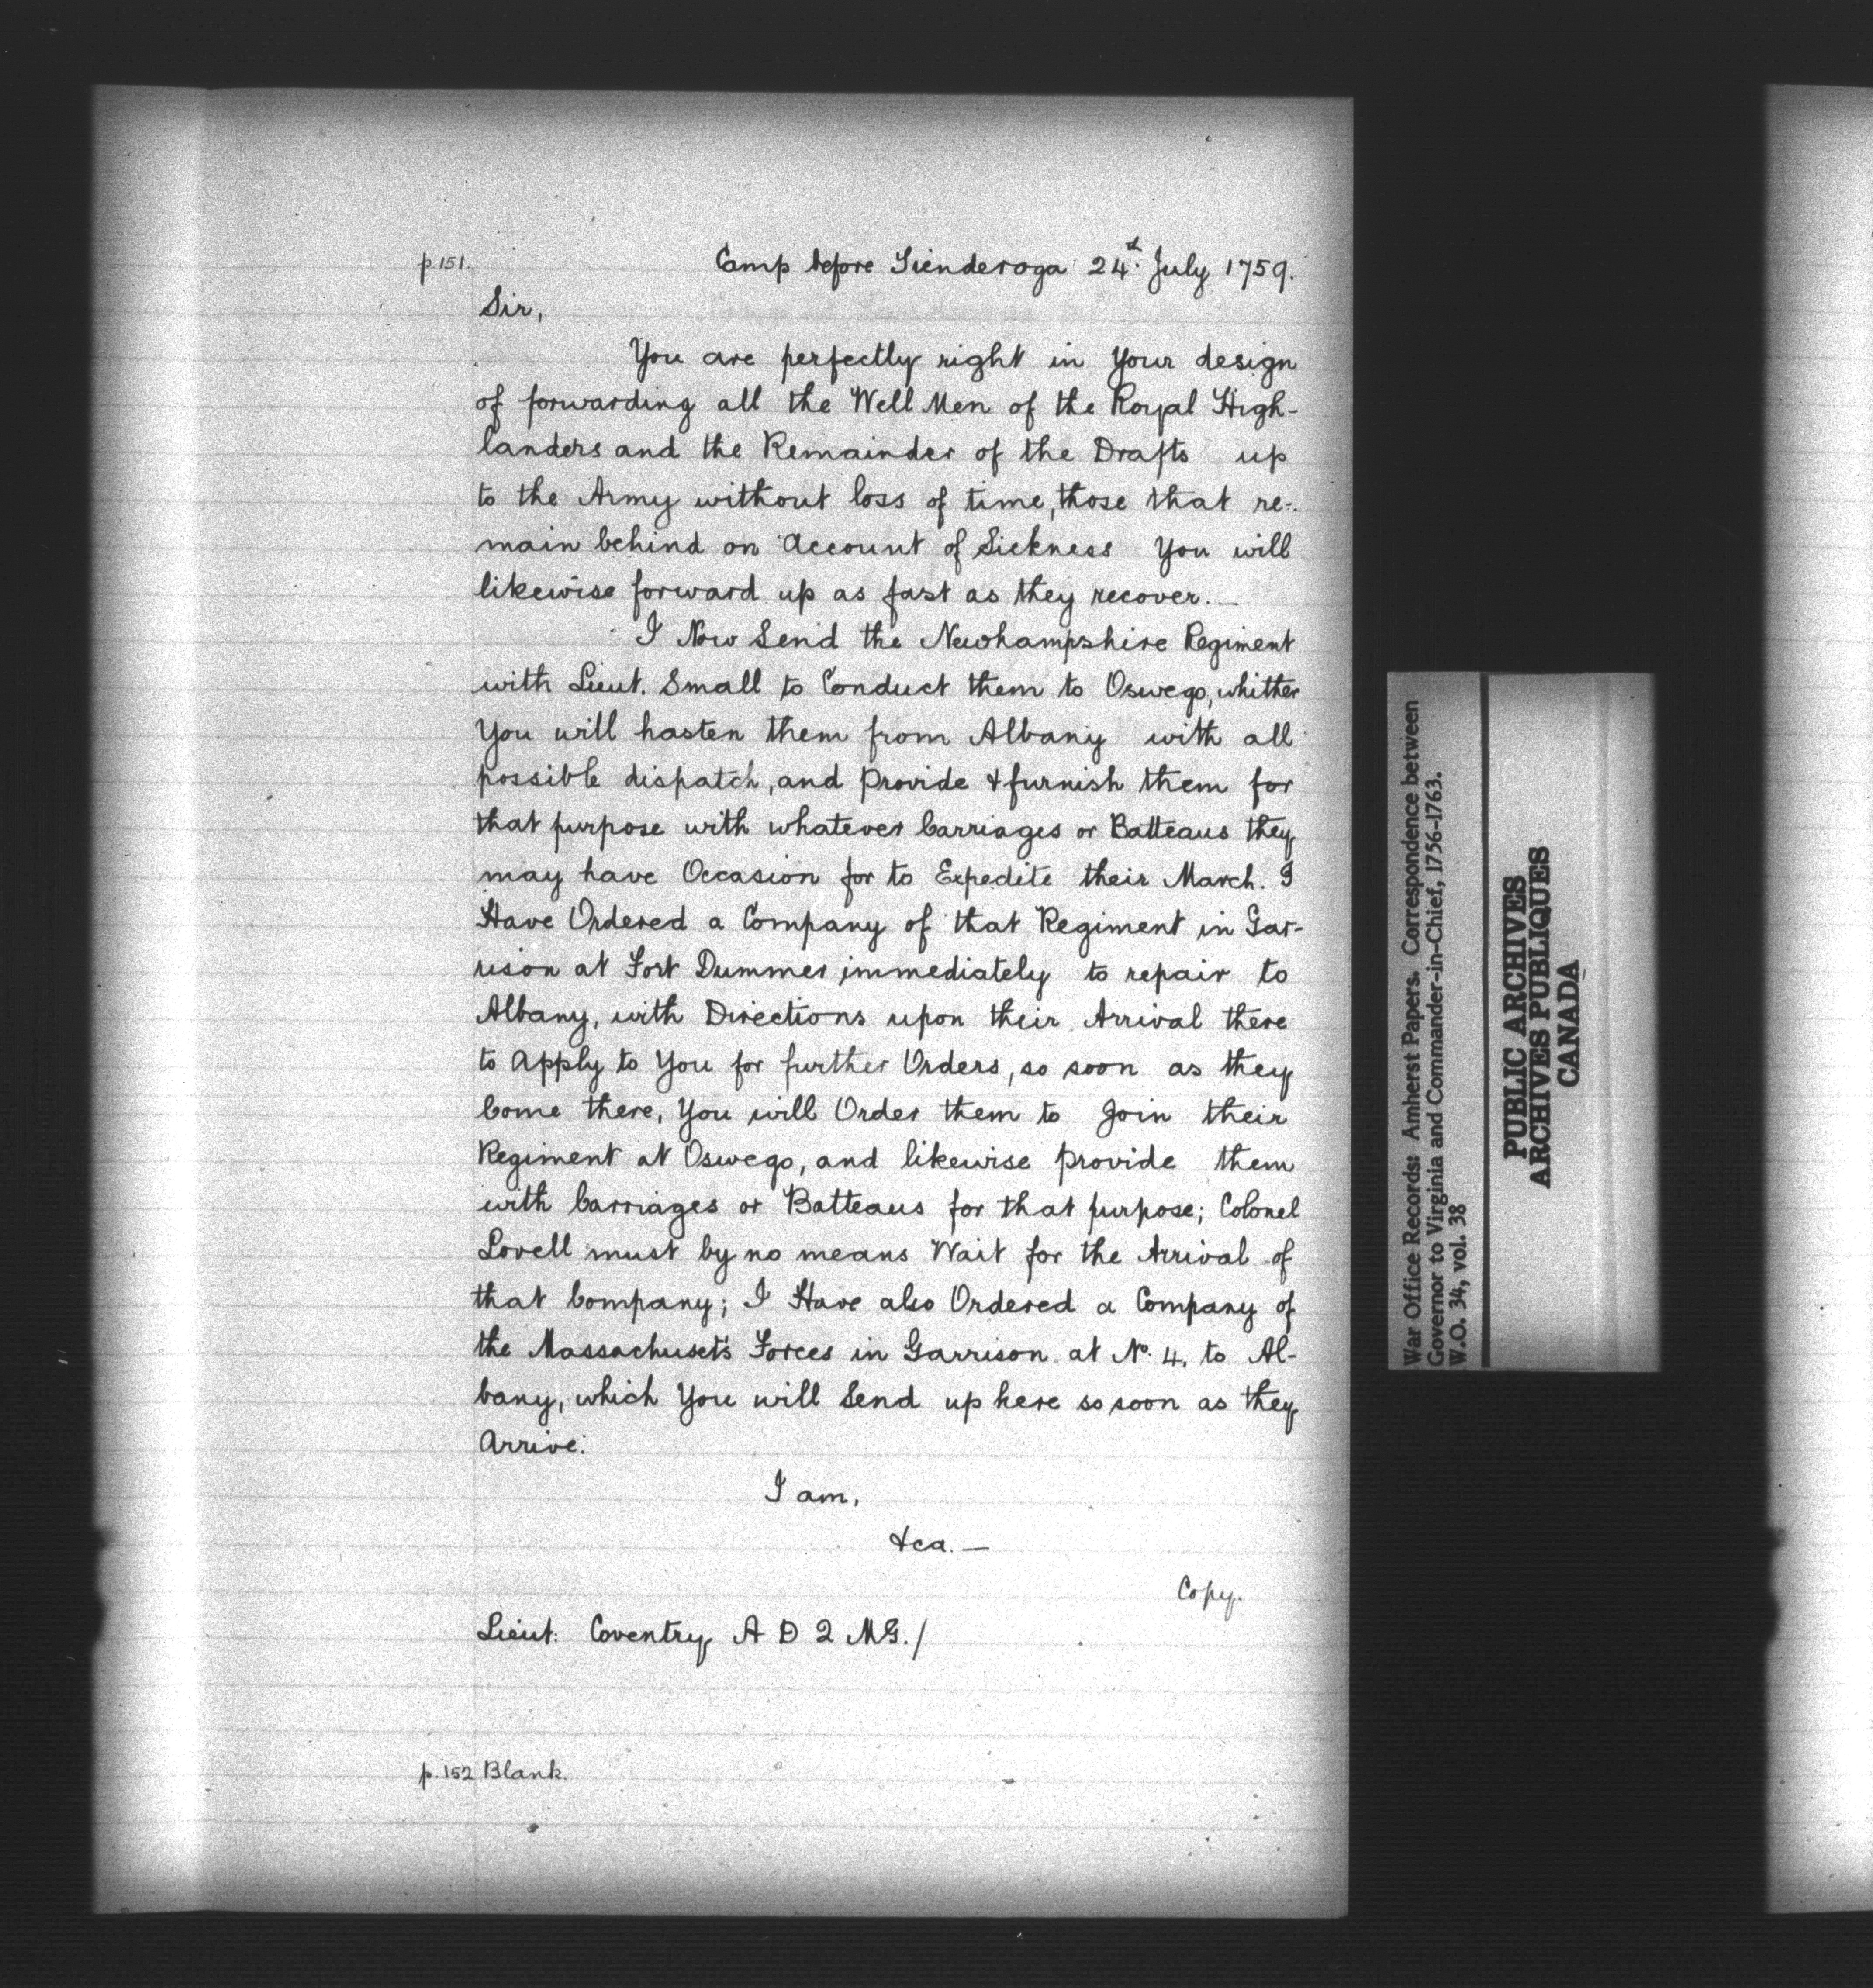 p 151. Camp before Tienderoga 24th July 1759.
Sir,
You are perfectly right in Your design
of forwarding all the Well Men of the Royal High-
landers and the Remainder of the Drafts up
to the Army without loss of time, those that re-
main behind on Account of Sickness You will
likewise forward up as fast as they recover. —
I Now Send the Newhampshire Regiment
with Lieut. Small to Conduct them to Oswego, whither
You will hasten them from Albany with all
possible dispatch, and Provide & furnish them for
that purpose with whatever Carriages or Batteaus they
may have Occasion for to Expedite their March. I
Have Ordered a Company of that Regiment in Gar-
rison at Fort Dummer immediately to repair to
Albany, with Directions upon their Arrival there
to Apply to You for further Orders, so soon as they
Come there, You will Order them to Join their
Regiment at Oswego, and likewise provide them
with Carriages or Batteaus for that purpose; Colonel
Lovell must by no means Wait for the Arrival of
that Company; I Have also Ordered a Company of
the Massachusets Forces in Garrison at No. 4, to Al-
bany, which You will Send up here so soon as they
Arrive.
I am,
&ca. —
Copy.
Lieut: Coventry A D Q M G. /
p. 152 Blank.
War Office Records: Amherst Papers. Correspondence between
Governor to Virginia and Commander-in-Chief, 1756-1763.
W.O. 34, vol. 38
PUBLIC ARCHIVES
ARCHIVES PUBLIQUES
CANADA